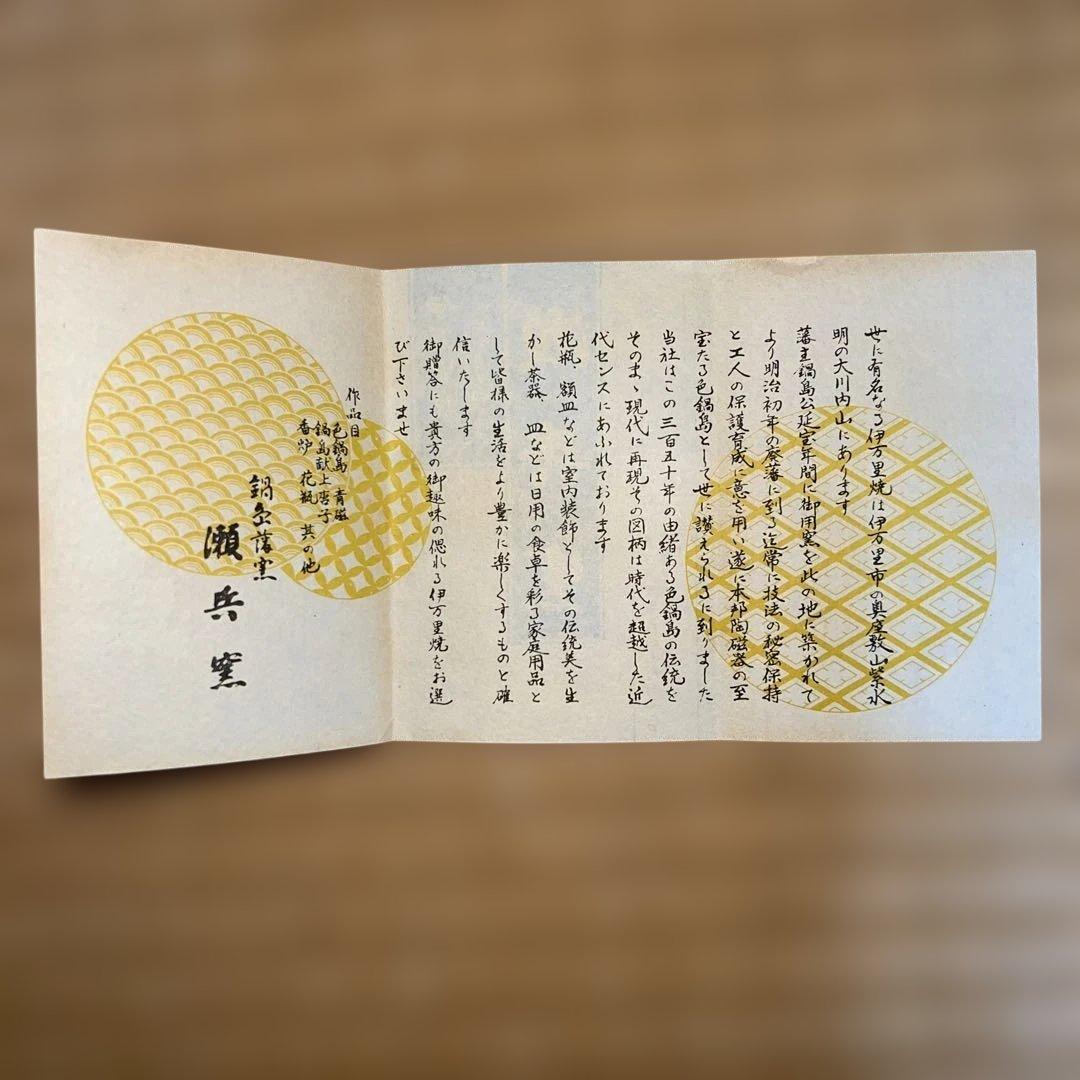 世に有名なる伊万里焼は伊万里市の奥座敷山紫水
明の大川内山にあります
藩主鍋島公延宝年間に御用窯を此の地に築かれて
より明治初年の廃藩に到る迄常に技法の秘密保持
と工人の保護育成に意を用い遂に本邦陶磁器の至
宝たる色鍋島として世に讃えられるに到りました
当社はこの三百五十年の由緒ある色鍋島の伝統を
そのまゝ現代に再現その図柄は時代を超越した近
代センスにあふれております
花瓶、額皿などは室内装飾としてその伝統美を生
かし茶器、皿などは日用の食卓を彩る家庭用品と
して皆様の生活をより豊かに楽しくするものと確
信いたします
御贈答にも貴方の御趣味の偲れる伊万里焼をお選
び下さいませ
作品目
色鍋島 青磁
鍋島献上唐子
香炉 花瓶 其の他
鍋島藩窯
瀬兵窯